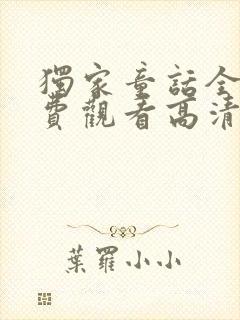 獨家童話全
費觀看高清
葉羅小小